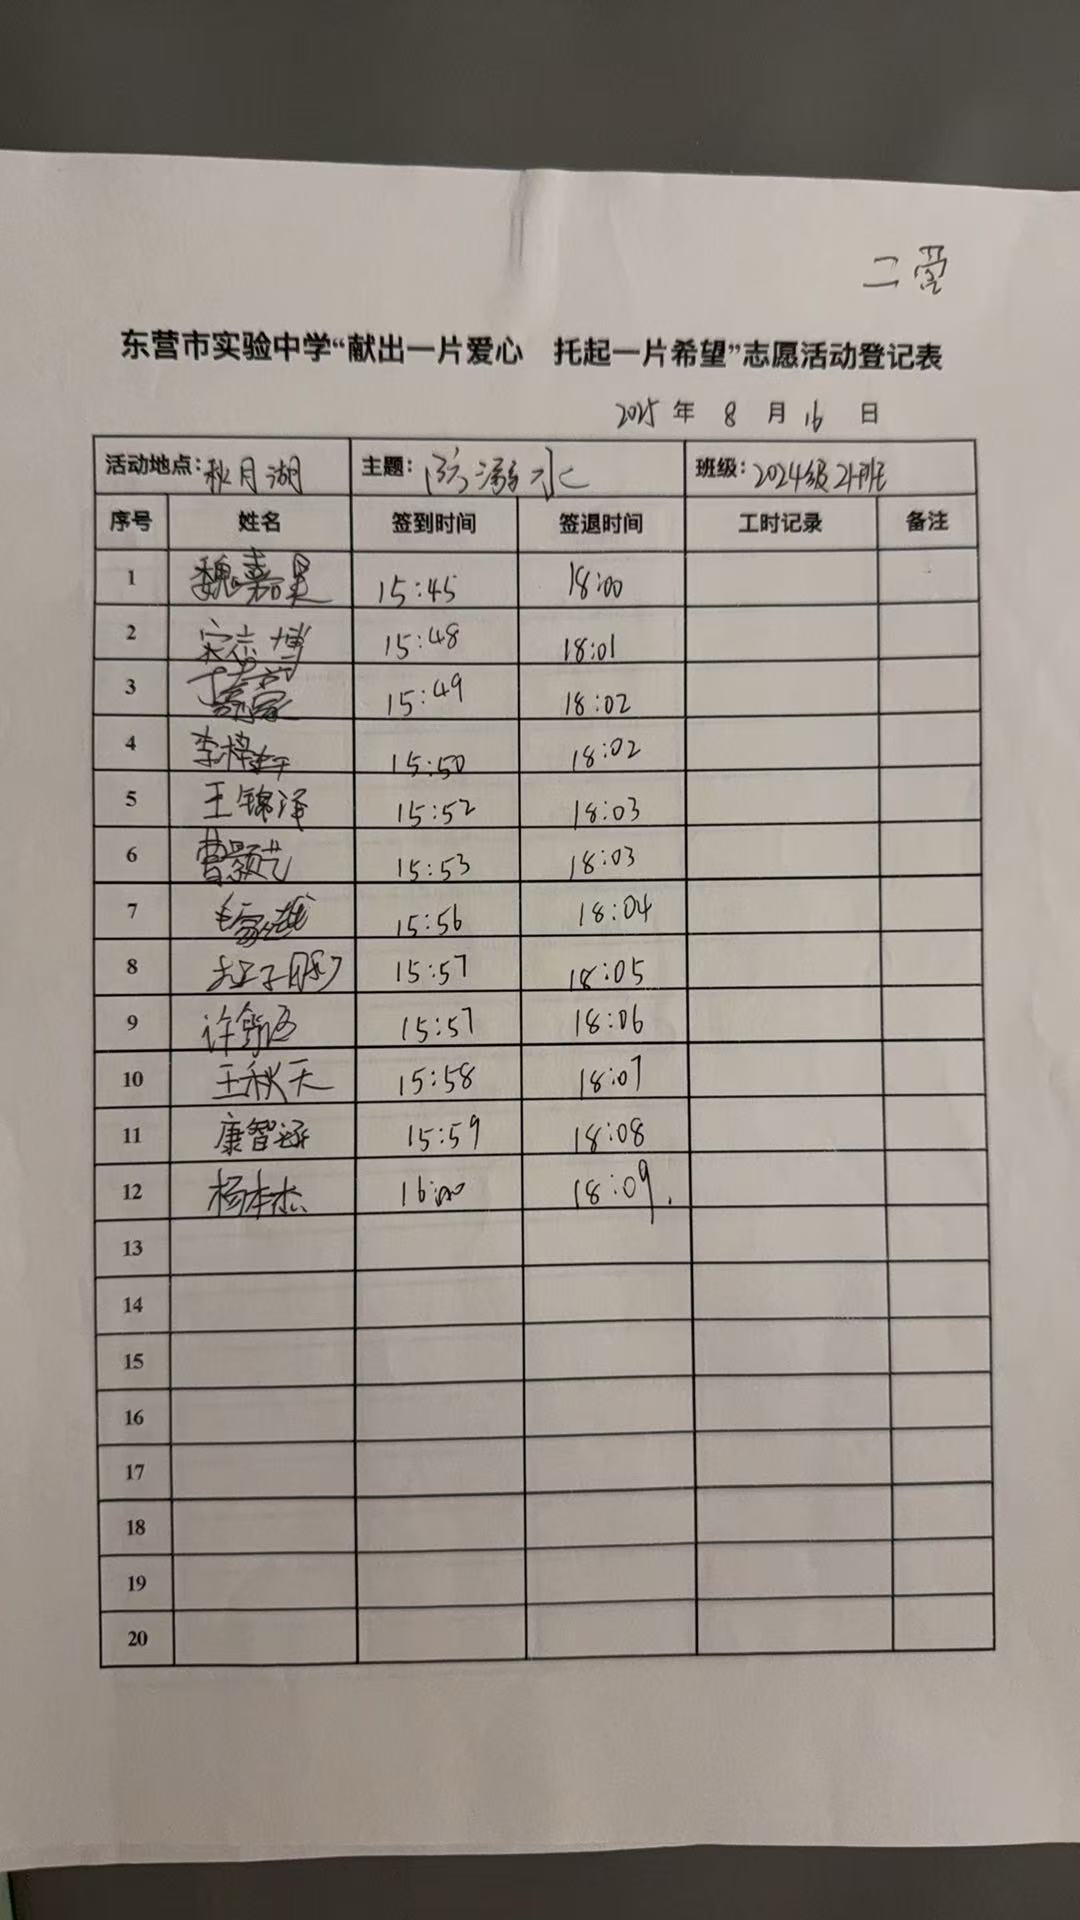 二营
东营市实验中学“献出一片爱心 托起一片希望”志愿活动登记表
2025 年 8 月 16 日
活动地点:秋月湖 主题:防溺水 班级:2024级21班
序号 姓名 签到时间 签退时间 工时记录 备注
1 魏嘉昊 15:45 18:00
2 宋志博 15:48 18:01
3 15:49 18:02
4 李梓 15:50 18:02
5 王锦泽 15:52 18:03
6 曹颢艺 15:53 18:03
7 15:56 18:04
8 15:57 18:05
9 许 15:57 18:06
10 王秋天 15:58 18:07
11 康智涵 15:59 18:08
12 杨本杰 16:00 18:09.
13
14
15
16
17
18
19
20